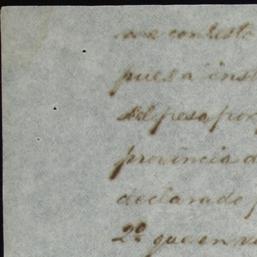 me contesto
puesa inst
del pesa por
provincia d
declarado p
2º que en v